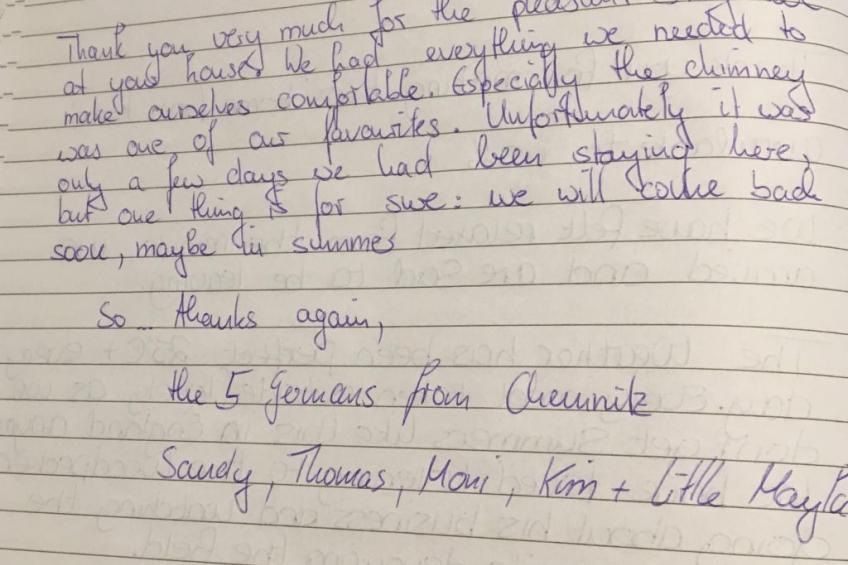 Thank you very much for the pleasant
at your house. We had everything we needed to
make ourselves comfortable. Especially the chimney
was one of our favourites. Unfortunately it was
only a few days we had been staying here,
but one thing is for sure: we will come back
soon, maybe in summer
So... thanks again,
the 5 Germans from Chemnitz
Sandy, Thomas, Moni, Kim + little Mayla